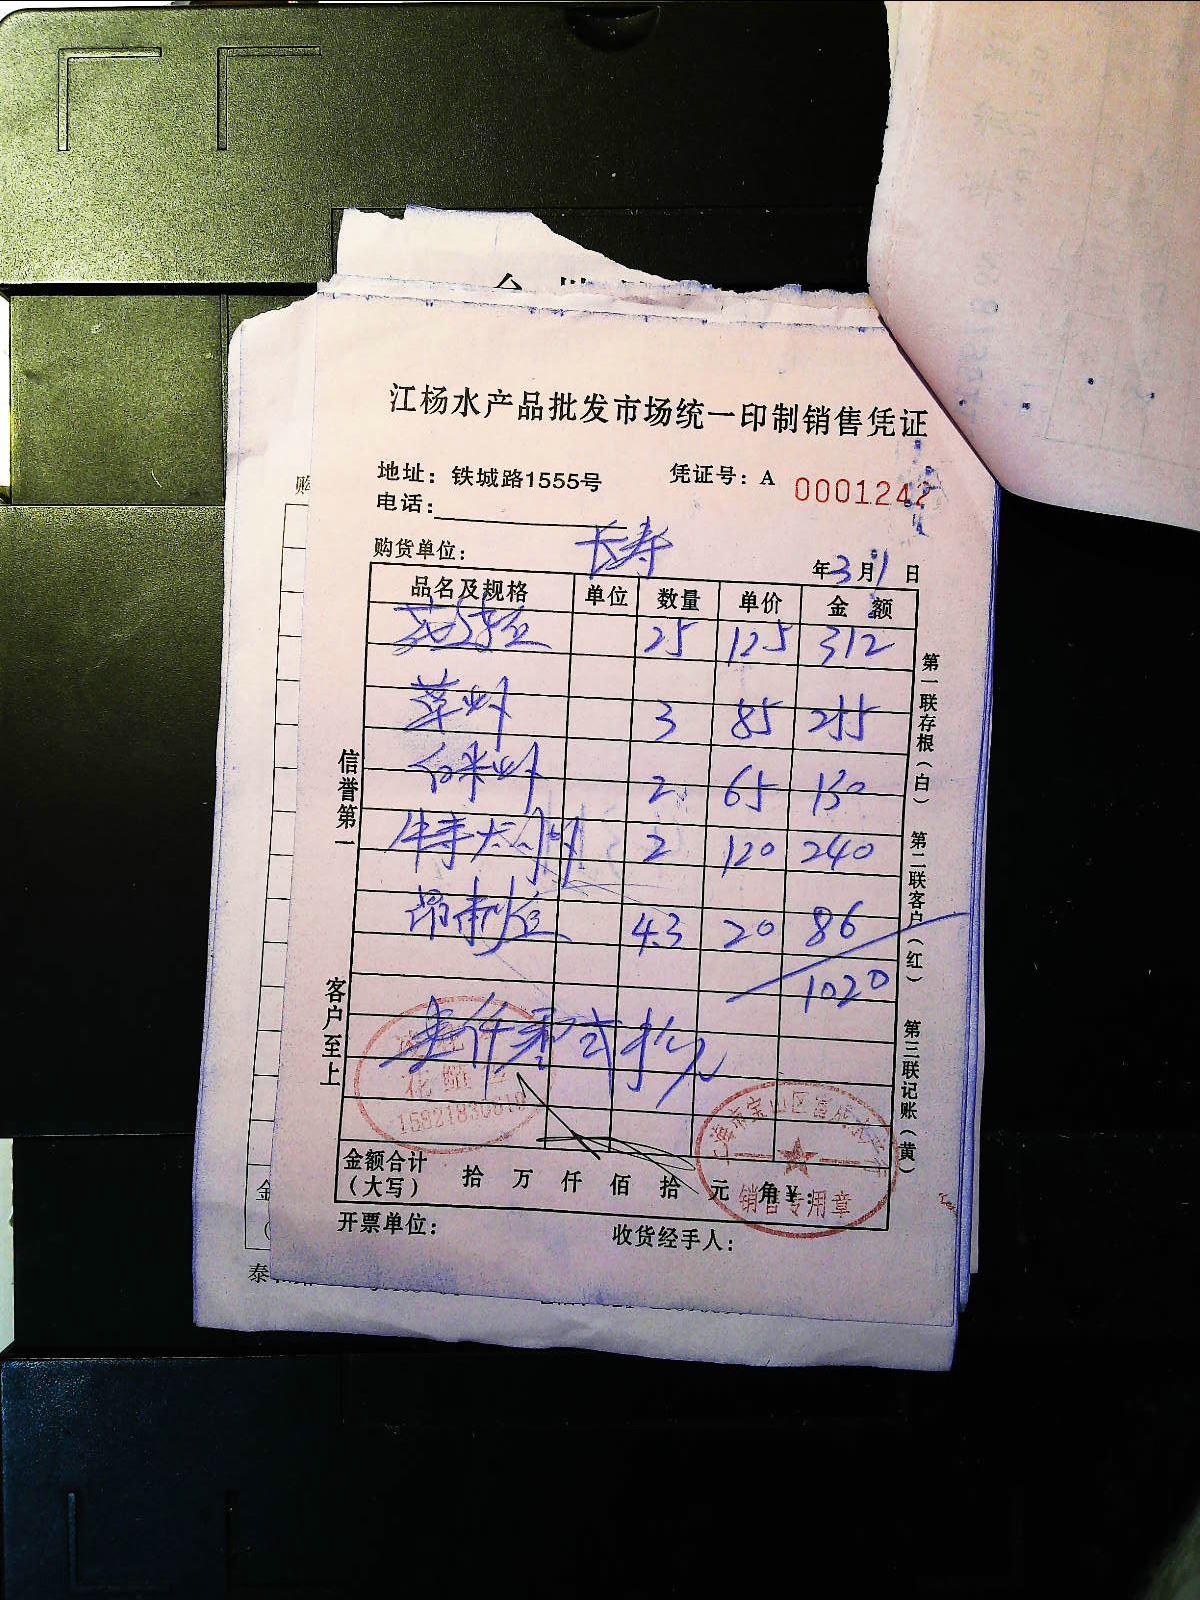 江杨水产品批发市场统一印制销售凭证
地址：铁城路1555号 凭证号：A 0001242
电话：
购货单位： 长寿 年3月1日
品名及规格 单位 数量 单价 金额
25 125 312
草虾 3 85 255
白米虾 2 65 130
2 120 240
4.3 20 86
1020
壹仟零贰拾元
15821830619
金额合计（大写） 拾 万 仟 佰 拾 元 角 ¥：
销售专用章
开票单位： 收货经手人：
信誉第一
客户至上
第一联存根（白）
第二联客户（红）
第三联记账（黄）